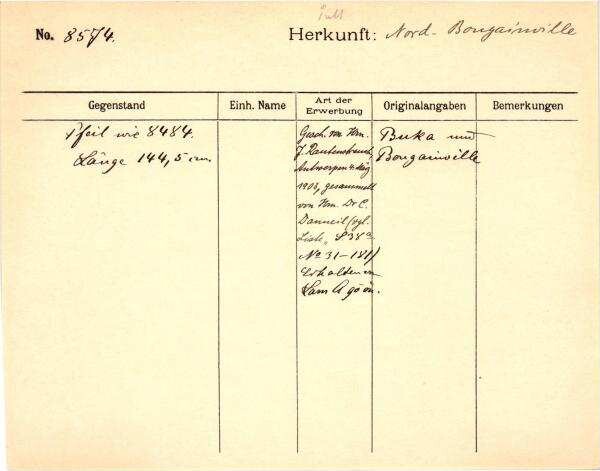 No. 8574. Herkunft: Nord-Bougainville
Gegenstand Einh. Name Art der Erwerbung Originalangaben Bemerkungen
Pfeil wie 8484.
Länge 144,5 cm
Gesch. von Hrn.
J. Rautenstrauch,
Antwerpen
1903, gesammelt
von Hrn. Dr C.
Danneil (vgl.
Liste, S38a
No 31-181)
Erhalten in
Buka und
Bougainville